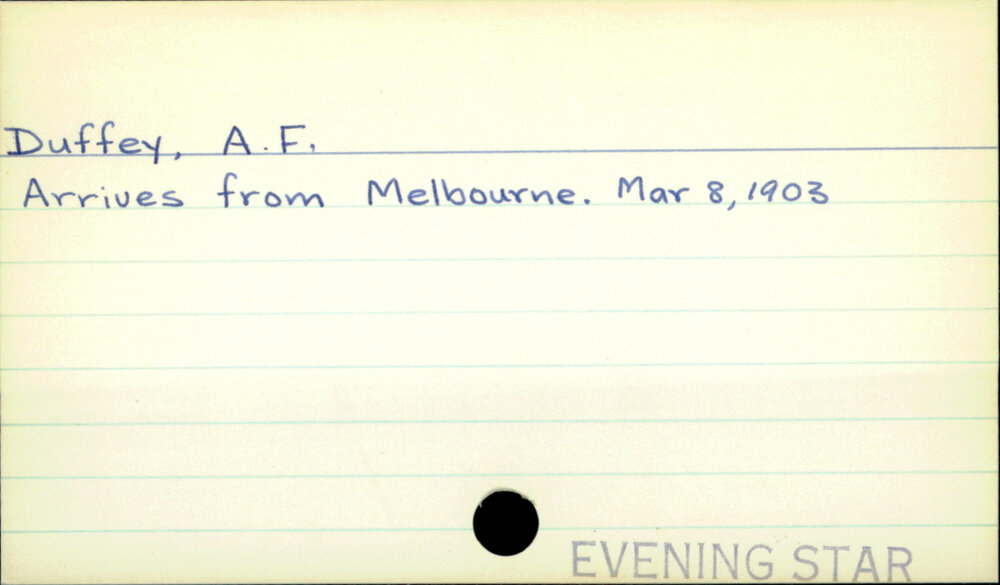 Duffey, A.F.
Arrives from Melbourne. Mar 8, 1903
EVENING STAR